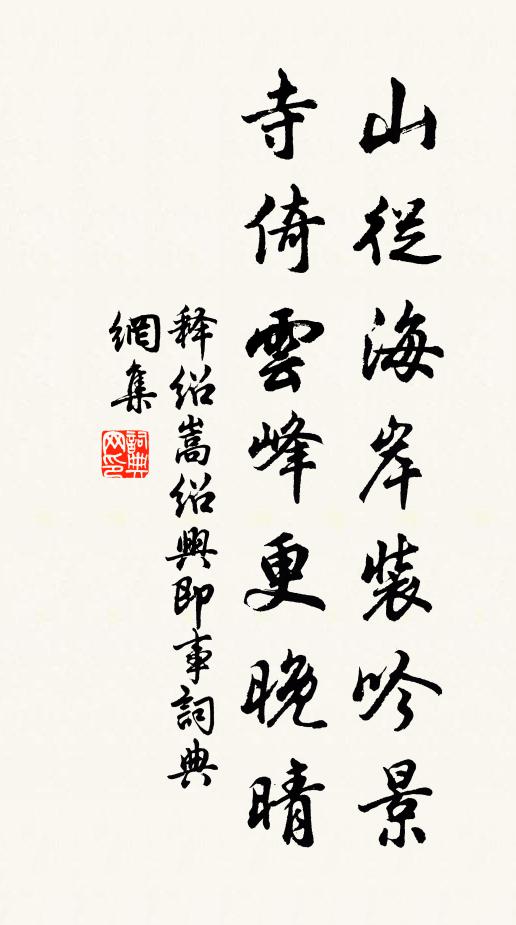 山從海岸裝吟景
寺倚雲峰更晚晴
释紹嵩紹興即事詞典
網集
詞典
网印